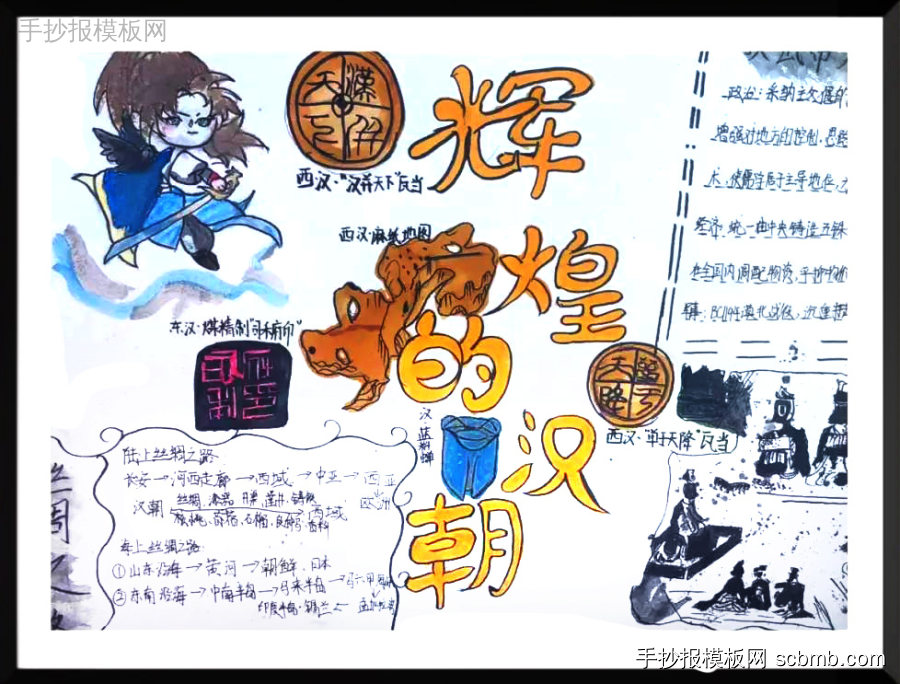 手抄报模板网
辉煌的汉朝
西汉·"汉并天下"瓦当
西汉·麻纸地图
东汉·煤精制"司禾府印"
汉·蓝料蝉
西汉·"单于天降"瓦当
政治：采纳主父偃的
增强对地方的控制，思想
术，使儒学居于主导地位，
经济：统一由中央铸造五铢
在全国内调配物资，平抑物价
陆上丝绸之路
长安→河西走廊→西域→中亚→西亚
欧洲
汉朝
丝绸、漆器
西域
核桃、苜蓿、石榴、良马、香料
海上丝绸之路
①山东沿海→黄河→朝鲜、日本
②东南沿海→中南半岛→马来半岛→马六甲海峡
→孟加拉湾
印度半岛·锡兰
手抄报模板网 scbmb.com